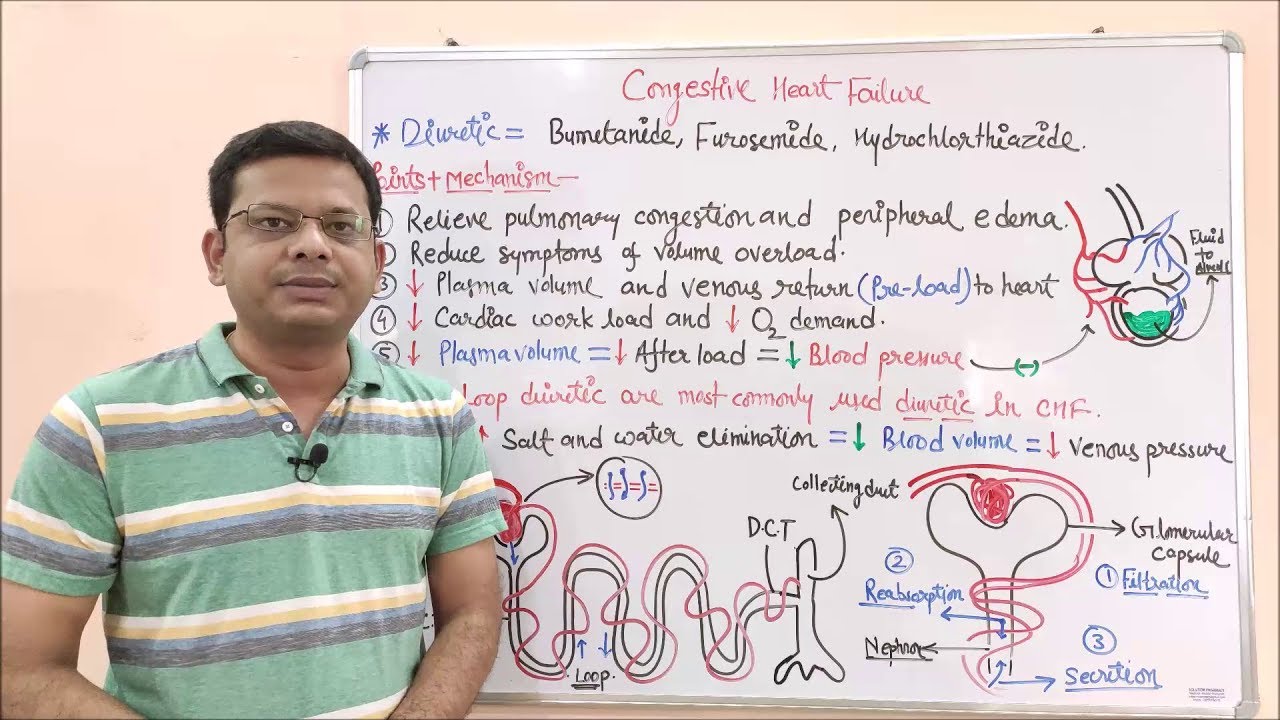 Congestive Heart Failure
* Diuretic = Bumetanide, Furosemide, Hydrochlorthiazide.
Points + Mechanism —
① Relieve pulmonary congestion and peripheral edema.
Reduce symptoms of volume overload.
③ ↓ Plasma volume and venous return (Pre-load) to heart
④ ↓ Cardiac work load and ↓ O2 demand.
⑤ ↓ Plasma volume = ↓ After load = ↓ Blood pressure (-)
Fluid
to
Loop diuretic are most commonly used diuretic in CHF.
Salt and water elimination = ↓ Blood volume = ↓ Venous pressure
Collecting duct
D.C.T
Glomerular
Capsule
②
Reabsorption
① Filtration
Nephron
③
Secrtion
Loop